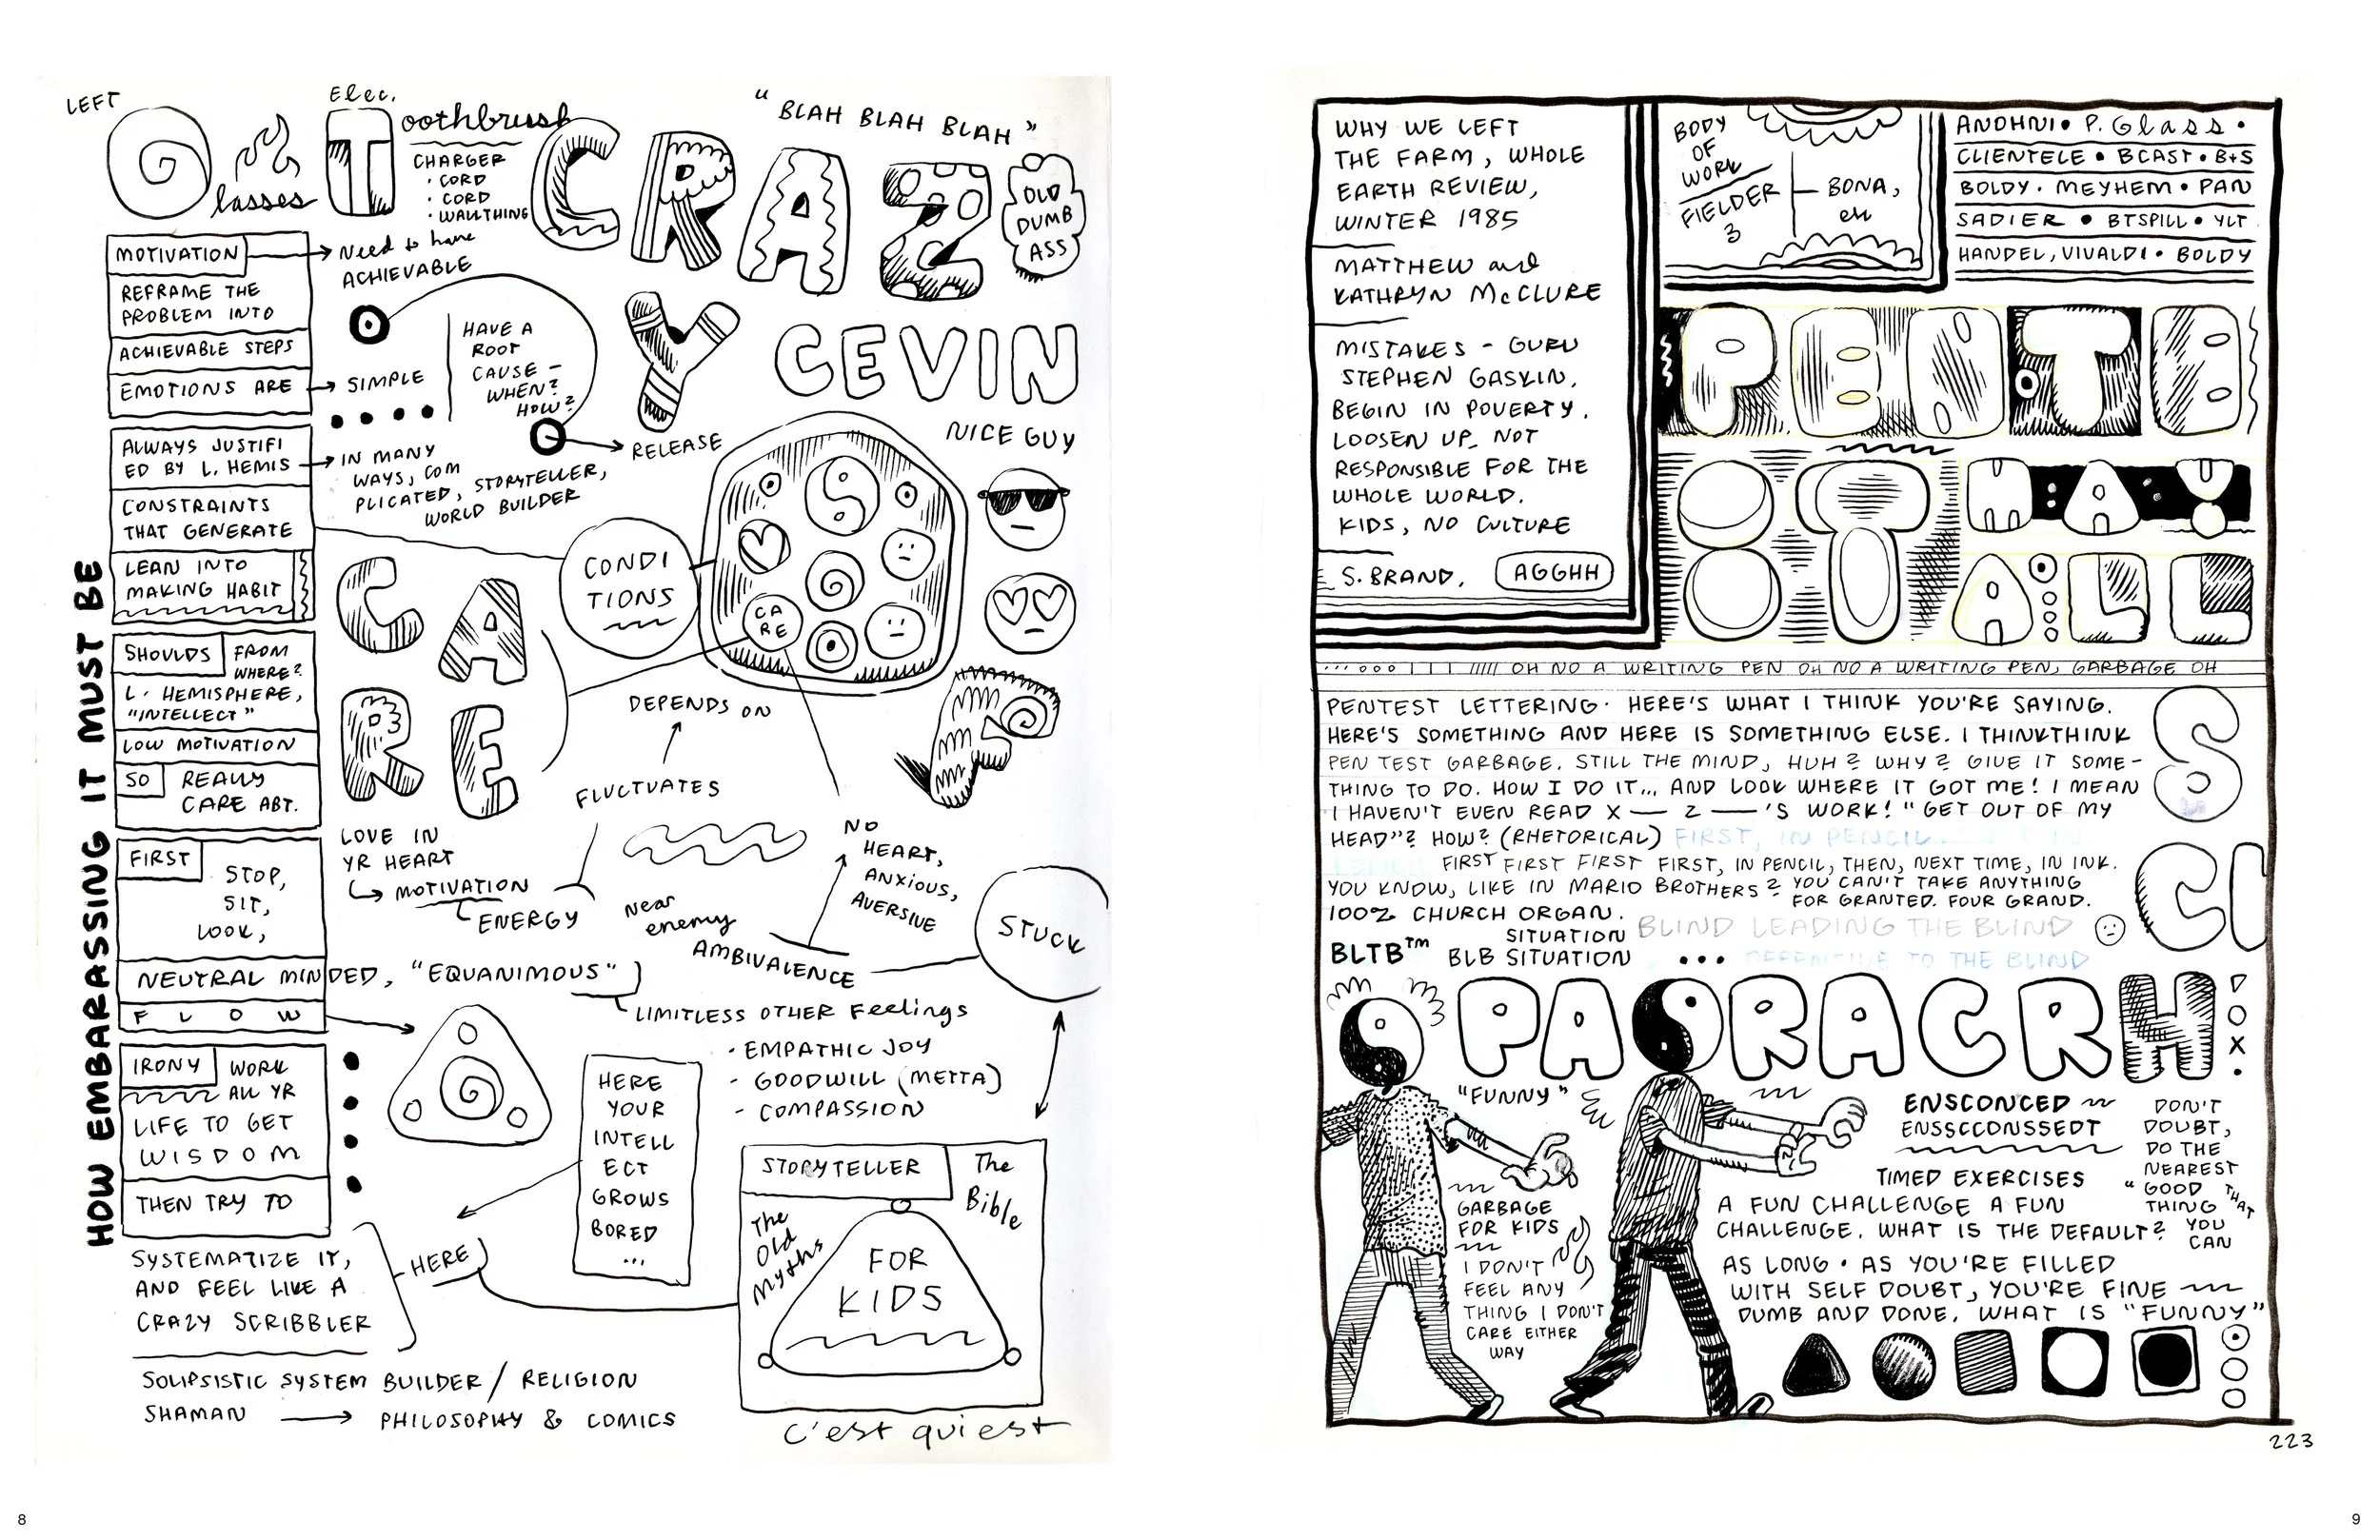 LEFT
Glasses
Elec.
Toothbrush
CHARGER
· CORD
· CORD
· WALLTHING
"BLAH BLAH BLAH"
CRAZ
Y
OLD
DUMB
ASS
CEVIN
NICE GUY
HOW EMBARASSING IT MUST BE
MOTIVATION
Need to have
ACHIEVABLE
REFRAME THE
PROBLEM INTO
ACHIEVABLE STEPS
EMOTIONS ARE
SIMPLE
HAVE A
ROOT
CAUSE –
WHEN?
HOW?
RELEASE
ALWAYS JUSTIFI
ED BY L. HEMIS
IN MANY
WAYS, COM
PLICATED, STORYTELLER,
WORLD BUILDER
CONSTRAINTS
THAT GENERATE
LEAN INTO
MAKING HABIT
CONDI
TIONS
CA
RE
CA
RE
SHOULDS FROM
WHERE?
L. HEMISPHERE,
"INTELLECT"
LOW MOTIVATION
SO REALLY
CARE ABT.
DEPENDS ON
FLUCTUATES
LOVE IN
YR HEART
MOTIVATION
ENERGY
NO
HEART,
ANXIOUS,
AVERSIVE
Near
enemy
AMBIVALENCE
STUCK
FIRST
STOP,
SIT,
LOOK,
NEUTRAL MINDED, "EQUANIMOUS"
FLOW
LIMITLESS OTHER Feelings
· EMPATHIC JOY
- GOODWILL (METTA)
- COMPASSION
IRONY WORK
ALL YR
LIFE TO GET
WISDOM
THEN TRY TO
SYSTEMATIZE IT,
AND FEEL LIKE A
CRAZY SCRIBBLER
HERE
HERE
YOUR
INTELL
ECT
GROWS
BORED
...
STORYTELLER
The
Bible
The
Old
Myths
FOR
KIDS
SOLIPSISTIC SYSTEM BUILDER / RELIGION
SHAMAN → PHILOSOPHY & COMICS
c'est qui est
8
WHY WE LEFT
THE FARM, WHOLE
EARTH REVIEW,
WINTER 1985
MATTHEW and
KATHRYN McCLURE
MISTAKES – GURU
STEPHEN GASKIN.
BEGIN IN POVERTY.
LOOSEN UP. NOT
RESPONSIBLE FOR THE
WHOLE WORLD.
KIDS, NO CULTURE
S. BRAND. AGGHH
BODY
OF
WORK
FIELDER
3
BONA,
eh
ANOHNI • P. Glass •
CLIENTELE • BCAST • B+S
BOLDY • MEYHEM • PAN
SADIER • BTSPILL • YLT
HANDEL, VIVALDI • BOLDY
PENTE
ST MAY
ALL
OH NO A WRITING PEN OH NO A WRITING PEN, GARBAGE OH
PENTEST LETTERING. HERE'S WHAT I THINK YOU'RE SAYING.
HERE'S SOMETHING AND HERE IS SOMETHING ELSE. I THINKTHINK
PEN TEST GARBAGE. STILL THE MIND, HUH? WHY? GIVE IT SOME-
THING TO DO. HOW I DO IT... AND LOOK WHERE IT GOT ME! I MEAN
I HAVEN'T EVEN READ X— Z—'S WORK! "GET OUT OF MY
HEAD"? HOW? (RHETORICAL) FIRST, IN PENCIL
FIRST FIRST FIRST FIRST, IN PENCIL, THEN, NEXT TIME, IN INK.
YOU KNOW, LIKE IN MARIO BROTHERS? YOU CAN'T TAKE ANYTHING
FOR GRANTED. FOUR GRAND.
100% CHURCH ORGAN.
SITUATION BLIND LEADING THE BLIND
BLTB™ BLB SITUATION ... TO THE BLIND
S
CI
PAORACRH
X
"FUNNY"
ENSCONCED
ENSSCCONSSEDT
TIMED EXERCISES
DON'T
DOUBT,
DO THE
NEAREST
"GOOD
THING THAT
YOU
CAN
GARBAGE
FOR KIDS
I DON'T
FEEL ANY
THING I DON'T
CARE EITHER
WAY
A FUN CHALLENGE A FUN
CHALLENGE. WHAT IS THE DEFAULT?
AS LONG • AS YOU'RE FILLED
WITH SELF DOUBT, YOU'RE FINE
DUMB AND DONE. WHAT IS "FUNNY"
223
9